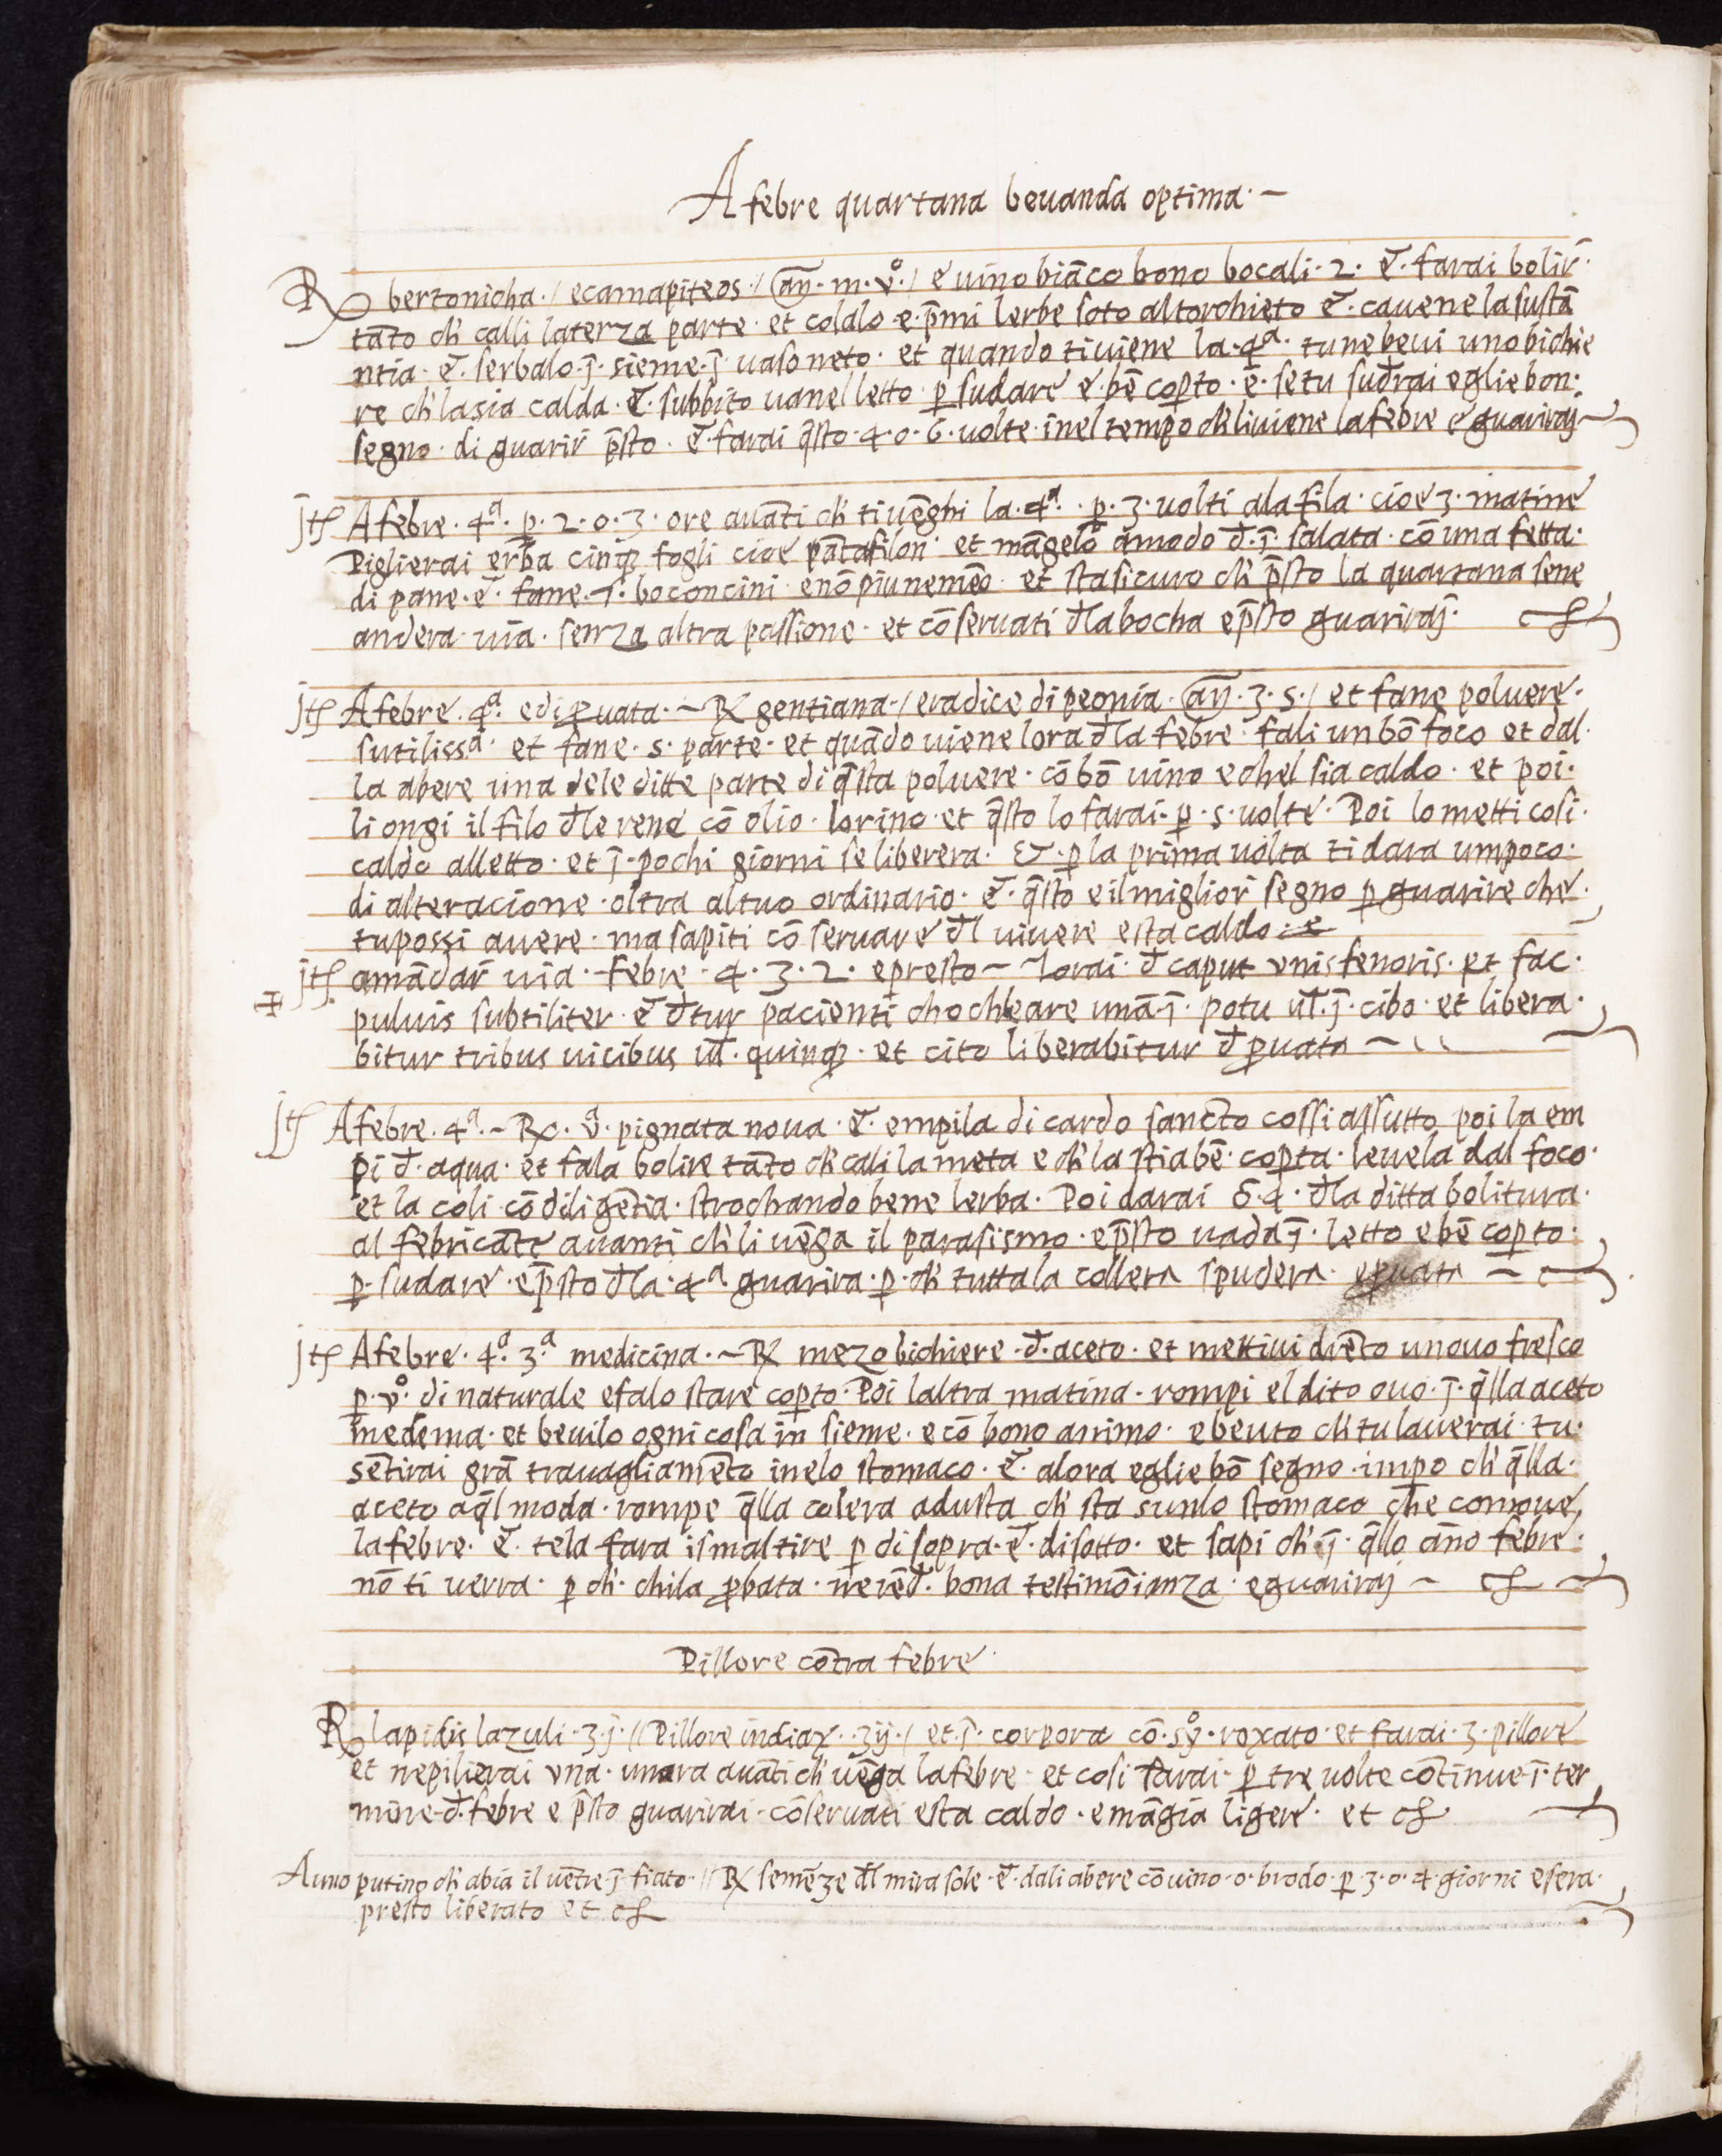 A febre quartana beuanda optima ·~
℞ bertonicha ·/ ecamapiteos ·/ añ · m · v° ·/ e uino biāco bono bocali · 2 · et̄ · farai bolir̄ ·
tāto ch' calli laterza parte · et colalo · e · p̄mi lerbe soto altorchieto et̄ · cauene la sustā
ntia · et̄ · serbalo · ī · sieme · ī uaso neto · et quando ti uiene la · 4ª · tu ne beui uno bichie
re ch' la sia calda · et̄ · subbito ua nel letto ꝑ sudare e · bē coꝑto · ē · se tu sud̄rai eglie bon ·
segno · di guarir̄ p̄sto · et̄ · farai q̄sto · 4 · o · 6 · uolte · inel tempo ch' li uiene la febre e guariraj ~
jtſ A febre · 4ª · ꝑ · 2 · o · 3 · ore auāti ch' ti uēghi la · 4ª · ꝑ · 3 · uolti ala fila · cioe 3 · matine
Piglierai erba cinqꝫ fogli cioe pātafilon · et māgelo amodo d̄ · ī · salata · cō una fetta ·
di pane · et̄ · fane · 1 · boconcini · e nō piu ne meō · et sta sicuro ch' p̄sto la quartana sene
andera · uia · senza altra passione · et cōseruati d̄la bocha e p̄sto guariraj ·
jtſ A febre · 4ª · edi ꝓuata · ~ ℞ gentiana ·/ e radice di peonia · añ · ʒ · s ·/ et fane poluere ·
sutilissª · et fane · s · parte · et quādo uiene lora d̄la febre · fali un bō foco et dal ·
la abere una dele ditte parte di q̄sta poluere · cō bō uino e chel sia caldo · et poi ·
li ongi il filo d̄le rene cō olio · lorino · et q̄sto lo farai · ꝑ · s · uolte · Poi lo metti cosi ·
caldo alletto · et ī · pochi giorni se liberera · & · ꝑ la prima uolta ti dara un poco ·
di alteracione · oltra al tuo ordinario · et̄ · q̄sto e il miglior̄ segno ꝑ guarire che ·
tu possi auere · ma sapiti cō seruare d̄l uiuere e sta caldo ·
jtſ amādar̄ uia · febre · 4 · 3 · 2 · e presto ~ d̄ caput vnis fenoris · et fac ·
puluis subtiliter · et̄ d̄tur pacienti chochleare unā · ī · potu ul̄ · ī · cibo · et libera ·
bitur tribus uicibus ul̄ · quinqꝫ · et cito liberabitur d̄ ꝓuata ~
jtſ A febre · 4ª · ~ ℞ · vª · pignata noua · et̄ · empila di cardo sancto cossi assutto poi la em
pi d̄ · aqua · et fala bolire tāto ch' cali la meta e ch' la stia bē · coꝑta · leuela dal foco ·
et la coli · cō diligētia · strochando bene lerba · Poi darai ō · 4 · d̄la ditta bolitura ·
al febricāte auanti ch' li uēga il parasismo · e p̄sto uada ī · letto e bē coꝑto ·
ꝑ · sudare · e p̄sto d̄la · 4ª guarira · ꝑ · ch' tutta la collera spudera · e ꝓuata ~
jtſ A febre · 4ª · 3ª medicina · ~ ℞ mezo bichiere · d̄ · aceto · et mettiui drēto un ouo fresco
ꝑ · v° · di naturale e falo stare coꝑto · Poi laltra matina · rompi el dito ouo · ī · q̄lla aceto
medema · et beuilo ogni cosa in sieme · e cō bono animo · e beuto ch' tu lauerai · tu ·
sētirai grā trauagliamēto inelo stomaco · et̄ · alora eglie bō segno · impo ch' q̄lla ·
aceto aq̄l moda · rompe q̄lla colera adusta ch' sta sunlo stomaco che comoue,
la febre · et̄ · tela fara ismaltire ꝑ di sopra · et̄ · disotto · et sapi ch' ī · q̄llo āno febre ·
nō ti uerra · ꝑ ch' · chi la ꝓbata · ne rēd̄ · bona testimōianza · e guariraj ~
Pillore cōtra febre ·
℞ lapidis lazuli · ʒ · j · // Pillore indiaꝝ · ʒij ·/ et · ī · corpora cō · sy° · roxato · et farai · 3 · pillore
et ne pilierai vna · unora auāti ch' uēga la febre · et cosi farai · ꝑ tre uolte cōtinue · ī · ter
mine · d̄ · febre e p̄sto guarirai · cōseruati e sta caldo · e māgia ligere · et
A uno putino ch' abia il uētre ī fiato · // ℞ semēze d̄l mira sole · et̄ · dali abere cō uino · o · brodo · ꝑ · 3 · o · 4 · giorni e sera ·
presto liberato et